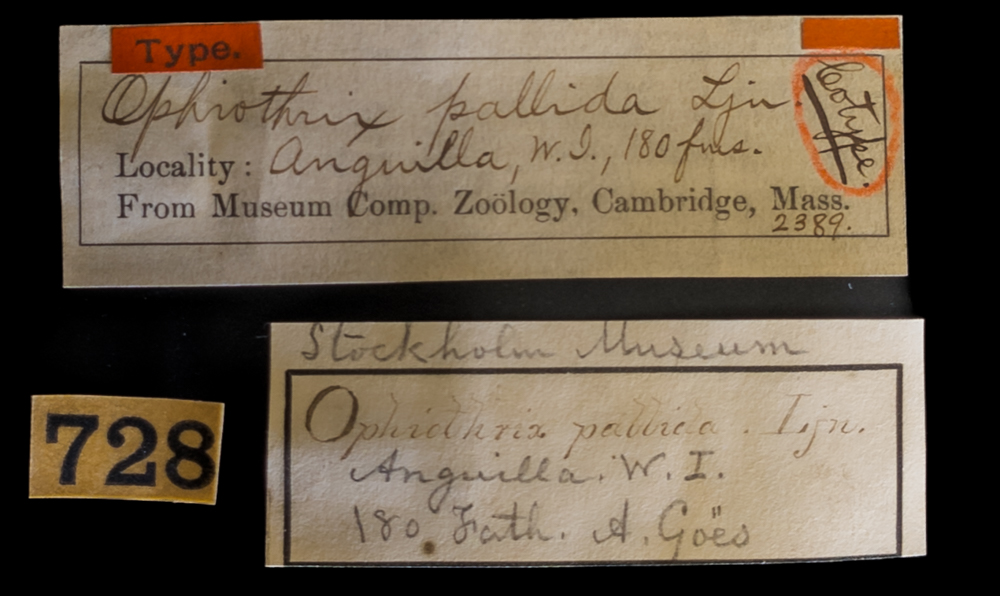 Type.
Ophiothrix pallida Ljn.
Cotype.
Locality: Anguilla, W.I., 180 fms.
From Museum Comp. Zoölogy, Cambridge, Mass.
2389.
Stockholm Museum
Ophiothrix pallida. Ljn.
Anguilla. W. I.
180 Fath. A. Goës
728